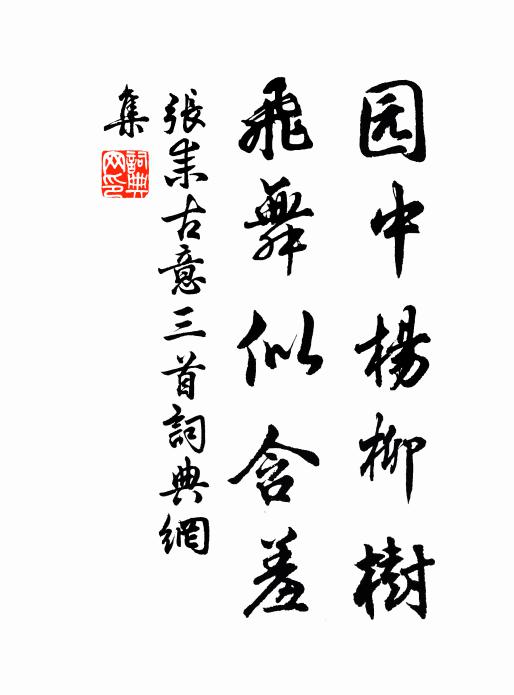 园中楊柳樹
飛舞似含羞
張耒古意三首詞典網
集
詞典网印